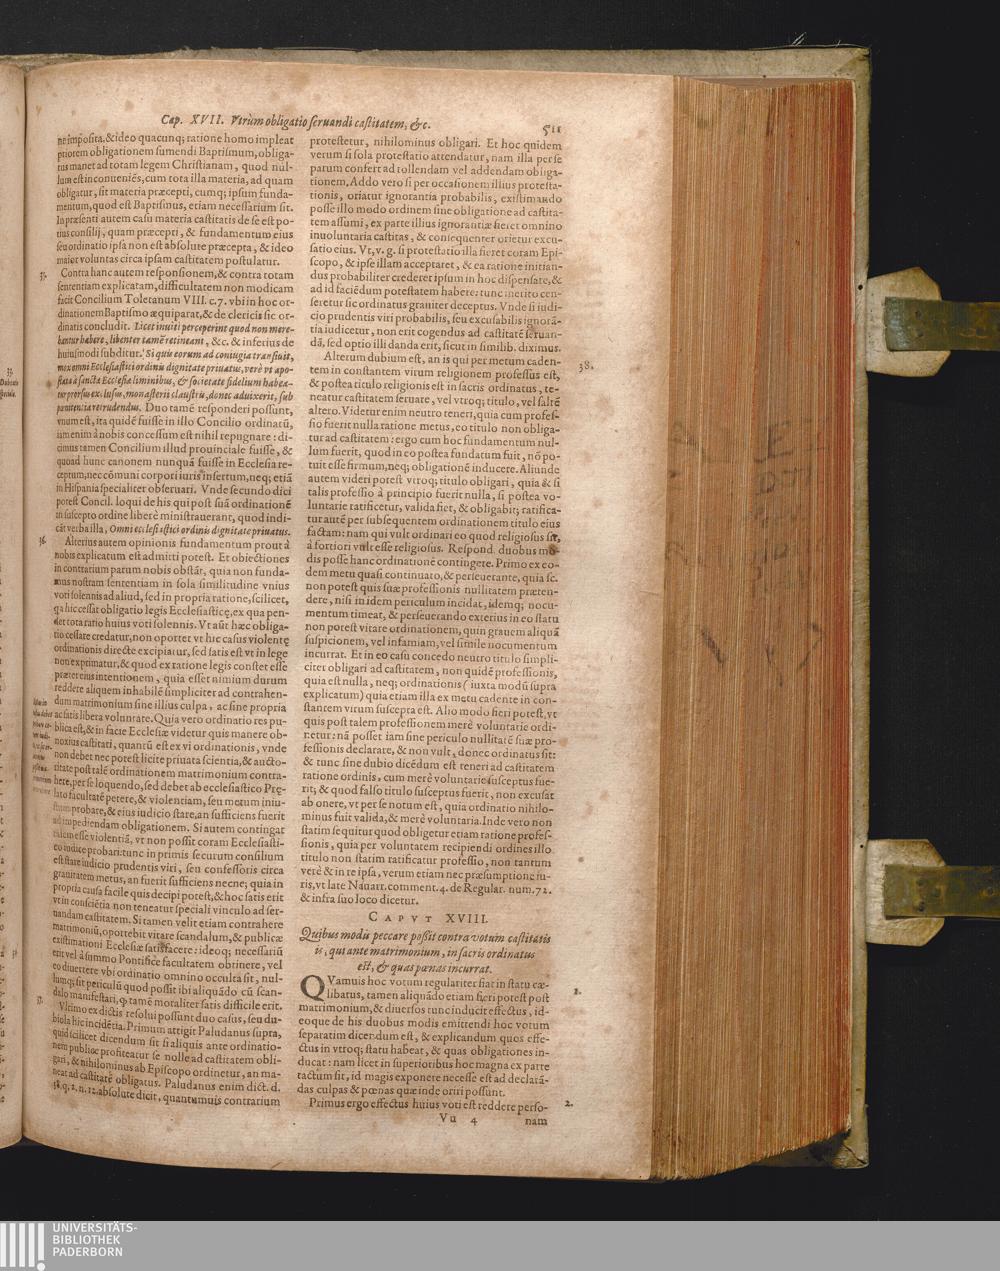 Cap. XVII. Vtrùm obligatio seruandi castitatem, &c.
511
ne imposita. & ideo quacunq; ratione homo impleat
priorem obligationem sumendi Baptismum, obliga-
tus manet ad totam legem Christianam, quod nul-
lum est inconueniẽs, cum tota illa materia, ad quam
obligatur, sit materia præcepti, cumq; ipsum funda-
mentum, quod est Baptismus, etiam necessarium sit.
In præsenti autem casu materia castitatis de se est po-
tius consilij, quam præcepti, & fundamentum eius
seu ordinatio ipsa non est absolute præcepta, & ideo
maior voluntas circa ipsam castitatem postulatur.
Contra hanc autem responsionem, & contra totam
sententiam explicatam, difficultatem non modicam
facit Concilium Toletanum VIII. c. 7. vbi in hoc or-
dinationem Baptismo æquiparat, & de clericis sic or-
dinatis concludit. Licet inuiti perceperint quod non mere-
bantur habere, libenter tamẽ retineant, &c. & inferius de
huiusmodi subditur. Si quis eorum ad coniugia transiuit,
mox omni Ecclesiastici ordinis dignitate priuatus, verè vt apo-
stata à sancta Ecclesiæ liminibus, & societate fidelium habea-
tur prorsus exclusus, monasterii claustris, donec aduixerit, sub
pœnitentia retrudendus. Duo tamẽ responderi possunt,
vnum est, ita quidẽ fuisse in illo Concilio ordinatũ,
iam enim à nobis concessum est nihil repugnare: di-
cimus tamen Concilium illud prouinciale fuisse, &
quoad hunc canonem nunquã fuisse in Ecclesia re-
ceptum, nec cõmuni corpori iuris insertum, neq; etiã
in Hispania specialiter obseruari. Vnde secundo dici
potest Concil. loqui de his qui post suã ordinationẽ
in suscepto ordine liberè ministrauerant, quod indi-
cãt verba illa, Omni ecclesiastici ordinis dignitate priuatus.
Alterius autem opinionis fundamentum prout à
nobis explicatum est admitti potest. Et obiectiones
in contrarium parum nobis obstãt, quia non funda-
mus nostram sententiam in sola similitudine vnius
voti solennis ad aliud, sed in propria ratione, scilicet,
qa hic cessat obligatio legis Ecclesiasticę, ex qua pen-
det tota ratio huius voti solennis. Vt aũt hæc obliga-
tio cessare credatur, non oportet vt hic casus violentę
ordinationis directe excipiatur, sed satis est vt in lege
non exprimatur, & quod ex ratione legis constet esse
præter eius intentionem, quia esset nimium durum
reddere aliquem inhabilẽ simpliciter ad contrahen-
dum matrimonium sine illius culpa, ac sine propria
ac satis libera voluntate. Quia vero ordinatio res pu-
blica est, & in facie Ecclesiæ videtur quis manere ob-
noxius castitati, quantũ est ex vi ordinationis, vnde
non debet nec potest licite priuata scientia, & aucto-
ritate post talẽ ordinationem matrimonium contra-
here, per se loquendo, sed debet ab ecclesiastico Prę-
lato facultatẽ petere, & violentiam, seu metum iniu-
stum probare, & eius iudicio stare, an sufficiens fuerit
ad impediendam obligationem. Si autem contingat
talem esse violentiã, vt non possit coram Ecclesiasti-
co iudice probari: tunc in primis securum consilium
est stare iudicio prudentis viri, seu confessoris circa
grauitatem metus, an fuerit sufficiens necne; quia in
propria causa facile quis decipi potest, & hoc satis erit
vt in consciẽtia non teneatur speciali vinculo ad ser-
uandam castitatem. Si tamen velit etiam contrahere
matrimoniũ, oportebit vitare scandalum, & publicæ
existimationi Ecclesiæ satisfacere: ideoq; necessariũ
erit vel à summo Pontifice facultatem obtinere, vel
eo diuertere vbi ordinatio omnino occulta sit, nul-
lumq; sit periculũ quod possit ibi aliquãdo cũ scan-
dalo manifestari, qđ tamẽ moraliter satis difficile erit.
Vltimo ex dictis resolui possunt duo casus, seu du-
bia la hic incidẽtia. Primum attigit Paludanus supra,
quid scilicet dicendum sit si aliquis ante ordinatio-
nem publice profiteatur se nolle ad castitatem obli-
gari, & nihilominus ab Episcopo ordinetur, an ma-
neat ad castitatẽ obligatus. Paludanus enim dict. d.
38. q. 2. n. 12. absolute dicit, quantumuis contrarium
protestetur, nihilominus obligari. Et hoc quidem
verum si sola protestatio attendatur, nam illa per se
parum confert ad tollendam vel addendam obliga-
tionem. Addo vero si per occasionem illius protesta-
tionis, oriatur ignorantia probabilis, existimando
posse illo modo ordinem sine obligatione ad castita-
tem assumi, ex parte illius ignorantiæ fieret omnino
inuoluntaria castitas, & consequenter orietur excu-
satio eius. Vt, v. g. si protestatio illa fieret coram Epi-
scopo, & ipse illam acceptaret, & ea ratione initian-
dus probabiliter crederet ipsum in hoc dispensare, &
ad id faciẽdum potestatem habere: tunc merito cen-
seretur sic ordinatus grauiter deceptus. Vnde si iudi-
cio prudentis viri probabilis, seu excusabilis ignorã-
tia iudicetur, non erit cogendus ad castitatẽ seruan-
dã, sed optio illi danda erit, sicut in similib. diximus.
Alterum dubium est, an is qui per metum caden-
tem in constantem virum religionem professus est,
& postea titulo religionis est in sacris ordinatus, te-
neatur castitatem seruare, vel vtroq; titulo, vel saltẽ
altero. Videtur enim neutro teneri, quia cum profes-
sio fuerit nulla ratione metus, eo titulo non obliga-
tur ad castitatem: ergo cum hoc fundamentum nul-
lum fuerit, quod in eo postea fundatum fuit, nõ po-
tuit esse firmum, neq; obligationẽ inducere. Aliunde
autem videri potest vtroq; titulo obligari, quia & si
talis professio à principio fuerit nulla, si postea vo-
luntarie ratificetur, valida fiet, & obligabit; ratifica-
tur autẽ per subsequentem ordinationem titulo eius
factam: nam qui vult ordinari eo quod religiosus sit,
à fortiori vult esse religiosus. Respond. duobus mo-
dis posse hanc ordinationẽ contingere. Primo ex eo-
dem metu quasi continuato, & perseuerante, quia sc.
non potest quis suæ professionis nullitatem præten-
dere, nisi in idem periculum incidat, idemq; nocu-
mentum timeat, & perseuerando exterius in eo statu
non potest vitare ordinationem, quin grauem aliquã
suspicionem, vel infamiam, vel simile nocumentum
incurrat. Et in eo casu concedo neutro titulo simpli-
citer obligari ad castitatem, non quidẽ professionis,
quia est nulla, neq; ordinationis (iuxta modũ supra
explicatum) quia etiam illa ex metu cadente in con-
stantem virum suscepta est. Alio modo fieri potest, vt
quis post talem professionem merè voluntarie ordi-
netur: nã posset iam sine periculo nullitatẽ suæ pro-
fessionis declarate, & non vult, donec ordinatus sit:
& tunc sine dubio dicẽdum est teneri ad castitatem
ratione ordinis, cum merè voluntarie susceptus fue-
rit; & quod falso titulo susceptus fuerit, non excusat
ab onere, vt per se notum est, quia ordinatio nihilo-
minus fuit valida, & merè voluntaria. Inde vero non
statim sequitur quod obligetur etiam ratione profes-
sionis, quia per voluntatem recipiendi ordines illo
titulo non statim ratificatur professio, non tantum
verè & in re ipsa, verum etiam nec præsumptione iu-
ris, vt late Nauarr. comment. 4. de Regular. num. 72.
& infra suo loco dicetur.
CAPVT XVIII.
Quibus modis peccare possit contra votum castitatis
is, qui ante matrimonium, in sacris ordinatus
est, & quas pœnas incurrat.
QVamuis hoc votum regulariter fiat in statu cæ-
libatus, tamen aliquãdo etiam fieri potest post
matrimonium, & diuersos tunc inducit effectus, id-
eoque de his duobus modis emittendi hoc votum
separatim dicendum est, & explicandum quos effe-
ctus in vtroq; statu habeat, & quas obligationes in-
ducat: nam licet in superioribus hoc magna ex parte
tactum sit, id magis exponere necesse est ad declarã-
das culpas & pœnas quæ inde oriri possunt.
Primus ergo effectus huius voti est reddere perso-
Vu 4
nam
35.
36.
37.
38.
1.
2.
UNIVERSITÄTS-
BIBLIOTHEK
PADERBORN